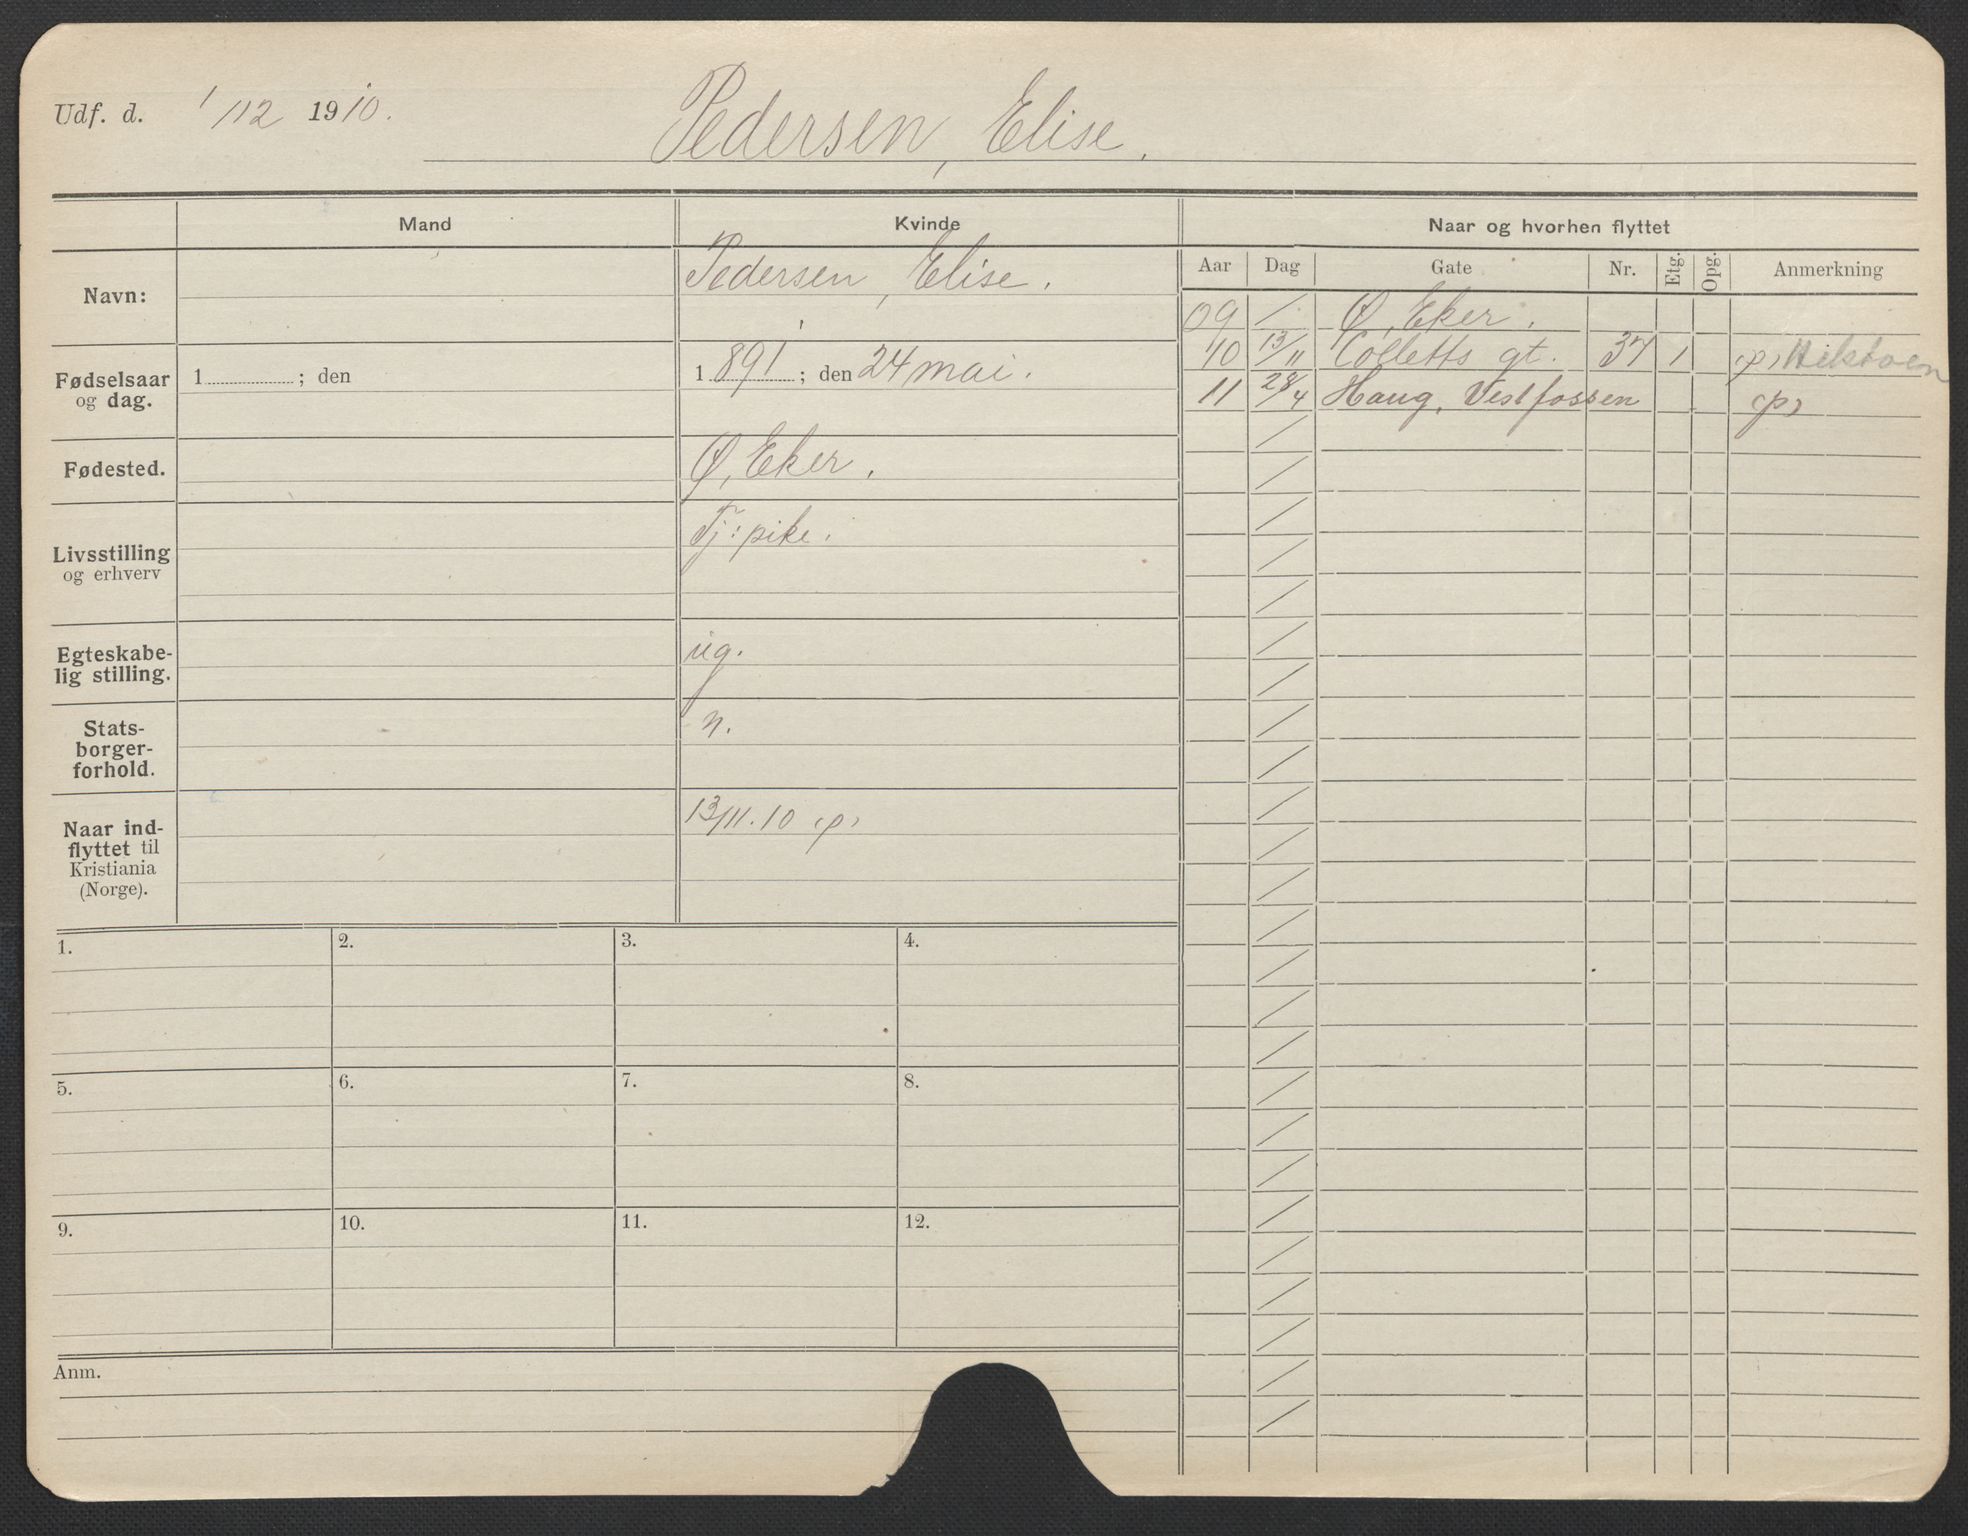 Udf. d. 1/12 1910.
Pedersen, Elise.
Mand
Kvinde
Naar og hvorhen flyttet
Navn:
Pedersen, Elise.
Aar Dag Gate Nr. Etg. Opg. Anmerkning
09 / Ø. Eker.
10 13/11 Colletts gt. 37 1 (p)
11 28/4 Haug, Vestfossen (p)
Fødselsaar og dag.
1 ; den
1891; den 24 mai.
Fødested.
Ø. Eker.
Livsstilling og erhverv
Tj: pike.
Egteskabe-
lig stilling.
ug.
Stats-
borger-
forhold.
n.
Naar ind-
flyttet til
Kristiania
(Norge).
13/11.10 (p)
1. 2. 3. 4.
5. 6. 7. 8.
9. 10. 11. 12.
Anm.